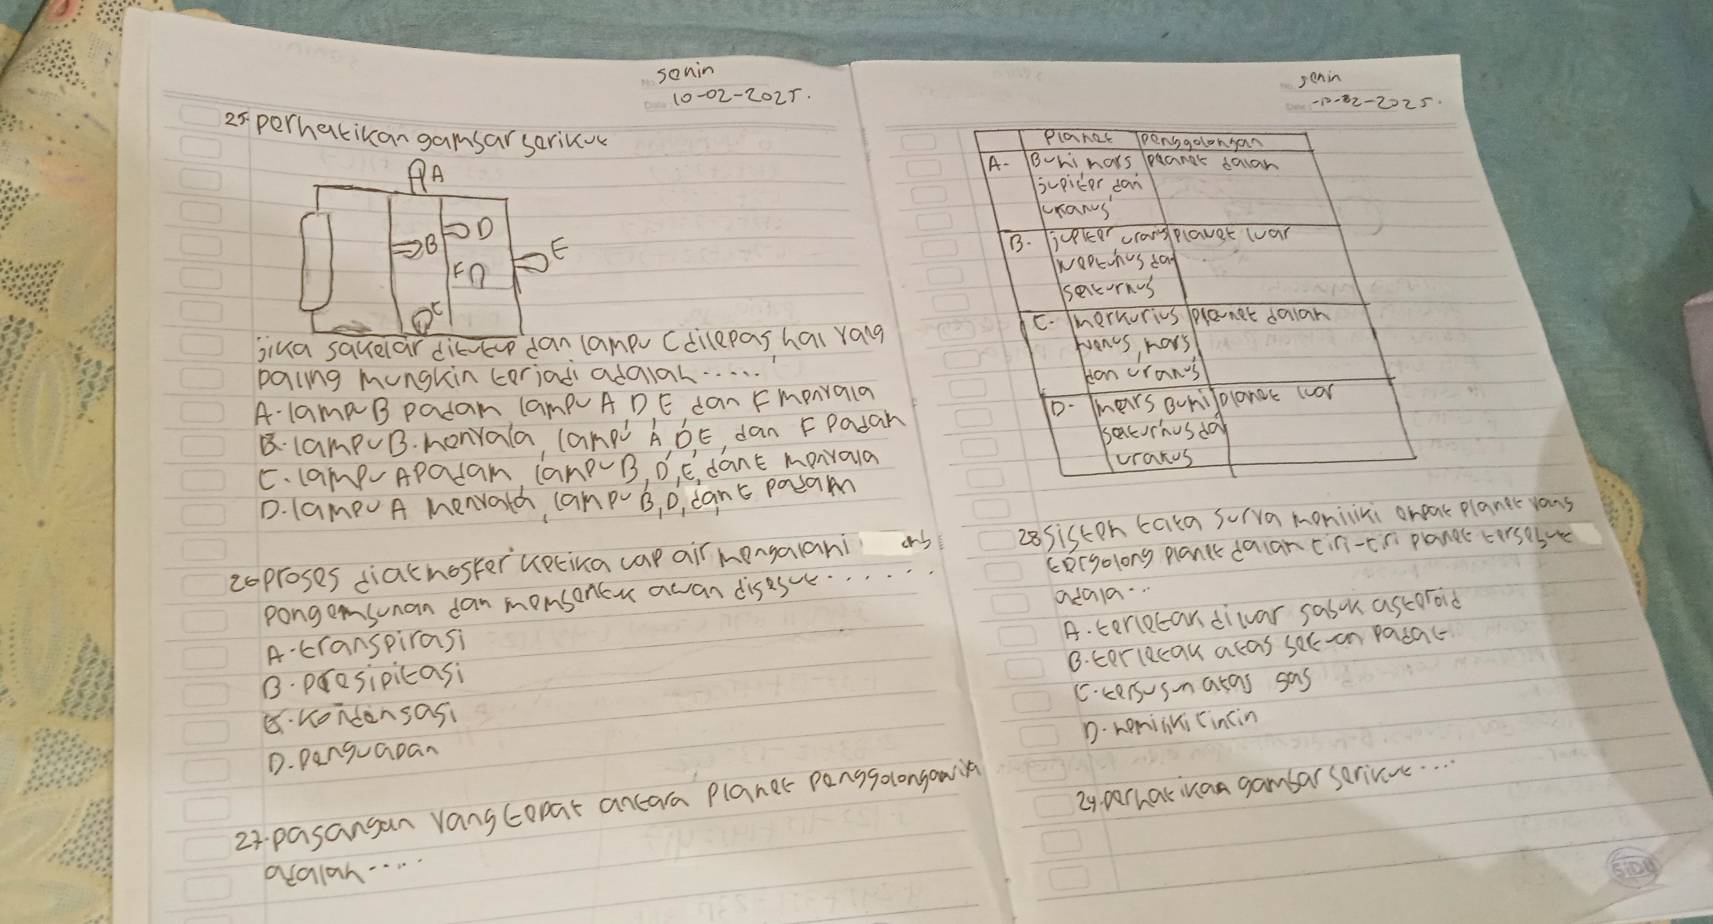 senin
10-02-2025.
25 perhatikan gambar berikut
A
B
D
E
F
C
jika sakelar ditutup dan lampu C dilepas, hal yang
paling mungkin terjadi adalah.....
A. lampu B padam lampu A D E, dan F menyala
B. lampu B. menyala, lampu A D E, dan F padam
C. lampu A padam, lampu B, D, E, dan E menyala
D. lampu A menyala, lampu B, D, dan E padam
26 proses diatmosfer ketika uap air mengalami
pengembunan dan membentuk awan disebut.......
A. transpirasi
B. presipitasi
C. kondensasi
D. penguapan
27. pasangan yang tepat antara planet penggolongannya
adalah.....
senin
-02-2025.
planet penggolongan
A. Bumi mars planet dalam
jupiter dan
uranus
B. jupiter uranus planet luar
Neptunus dan
saturnus
C. merkurius planet dalam
venus, mars
dan uranus
D. mars Bumi planet luar
saturnus dan
uranus
28 sistem tata surya memiliki empat planet yang
tergolong planet dalam ciri-ciri planet tersebut
adala..
A. terletak diluar sabuk asteroid
B. terletak atas batuan padat
C. tersusun atas gas
D. memiliki cincin
29. perhatikan gambar berikut....
SIDU